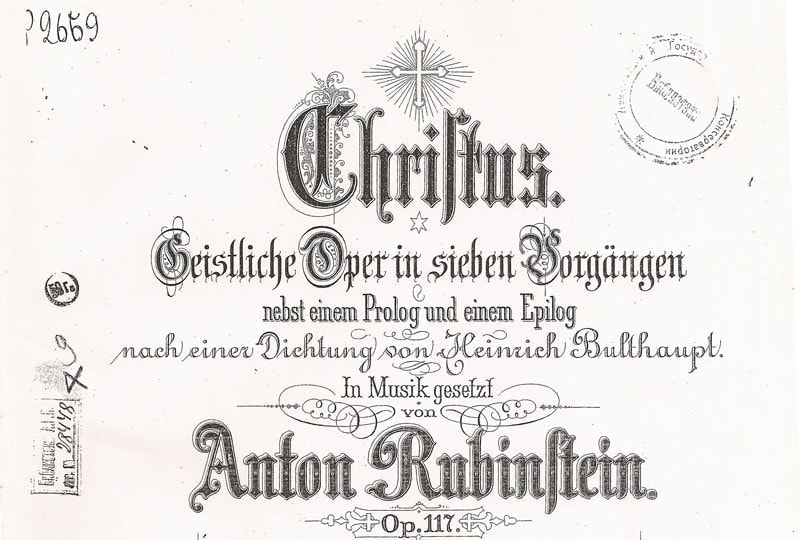 2659
Christus.
Geistliche Oper in sieben Vorgängen
nebst einem Prolog und einem Epilog
nach einer Dichtung von Heinrich Bulthaupt.
In Musik gesetzt
von
Anton Rubinstein.
Op. 117.
Библиотека
Консерватории
28448